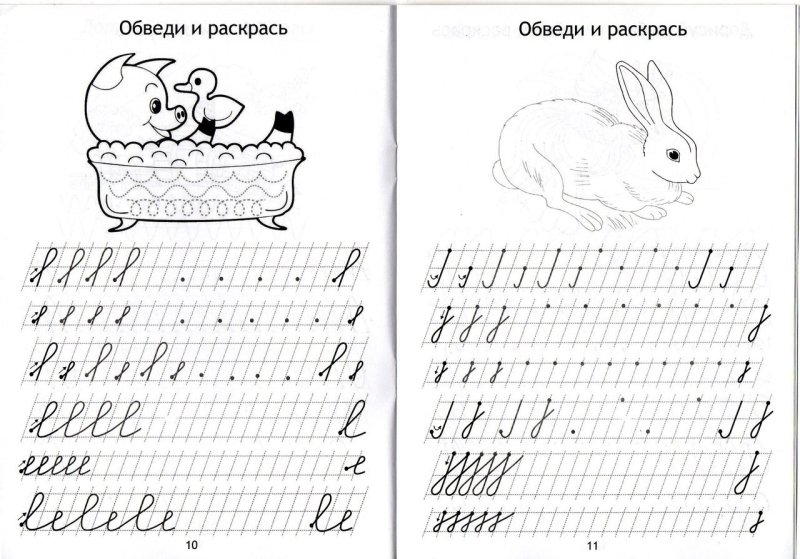 Обведи и раскрась
10
Обведи и раскрась
11